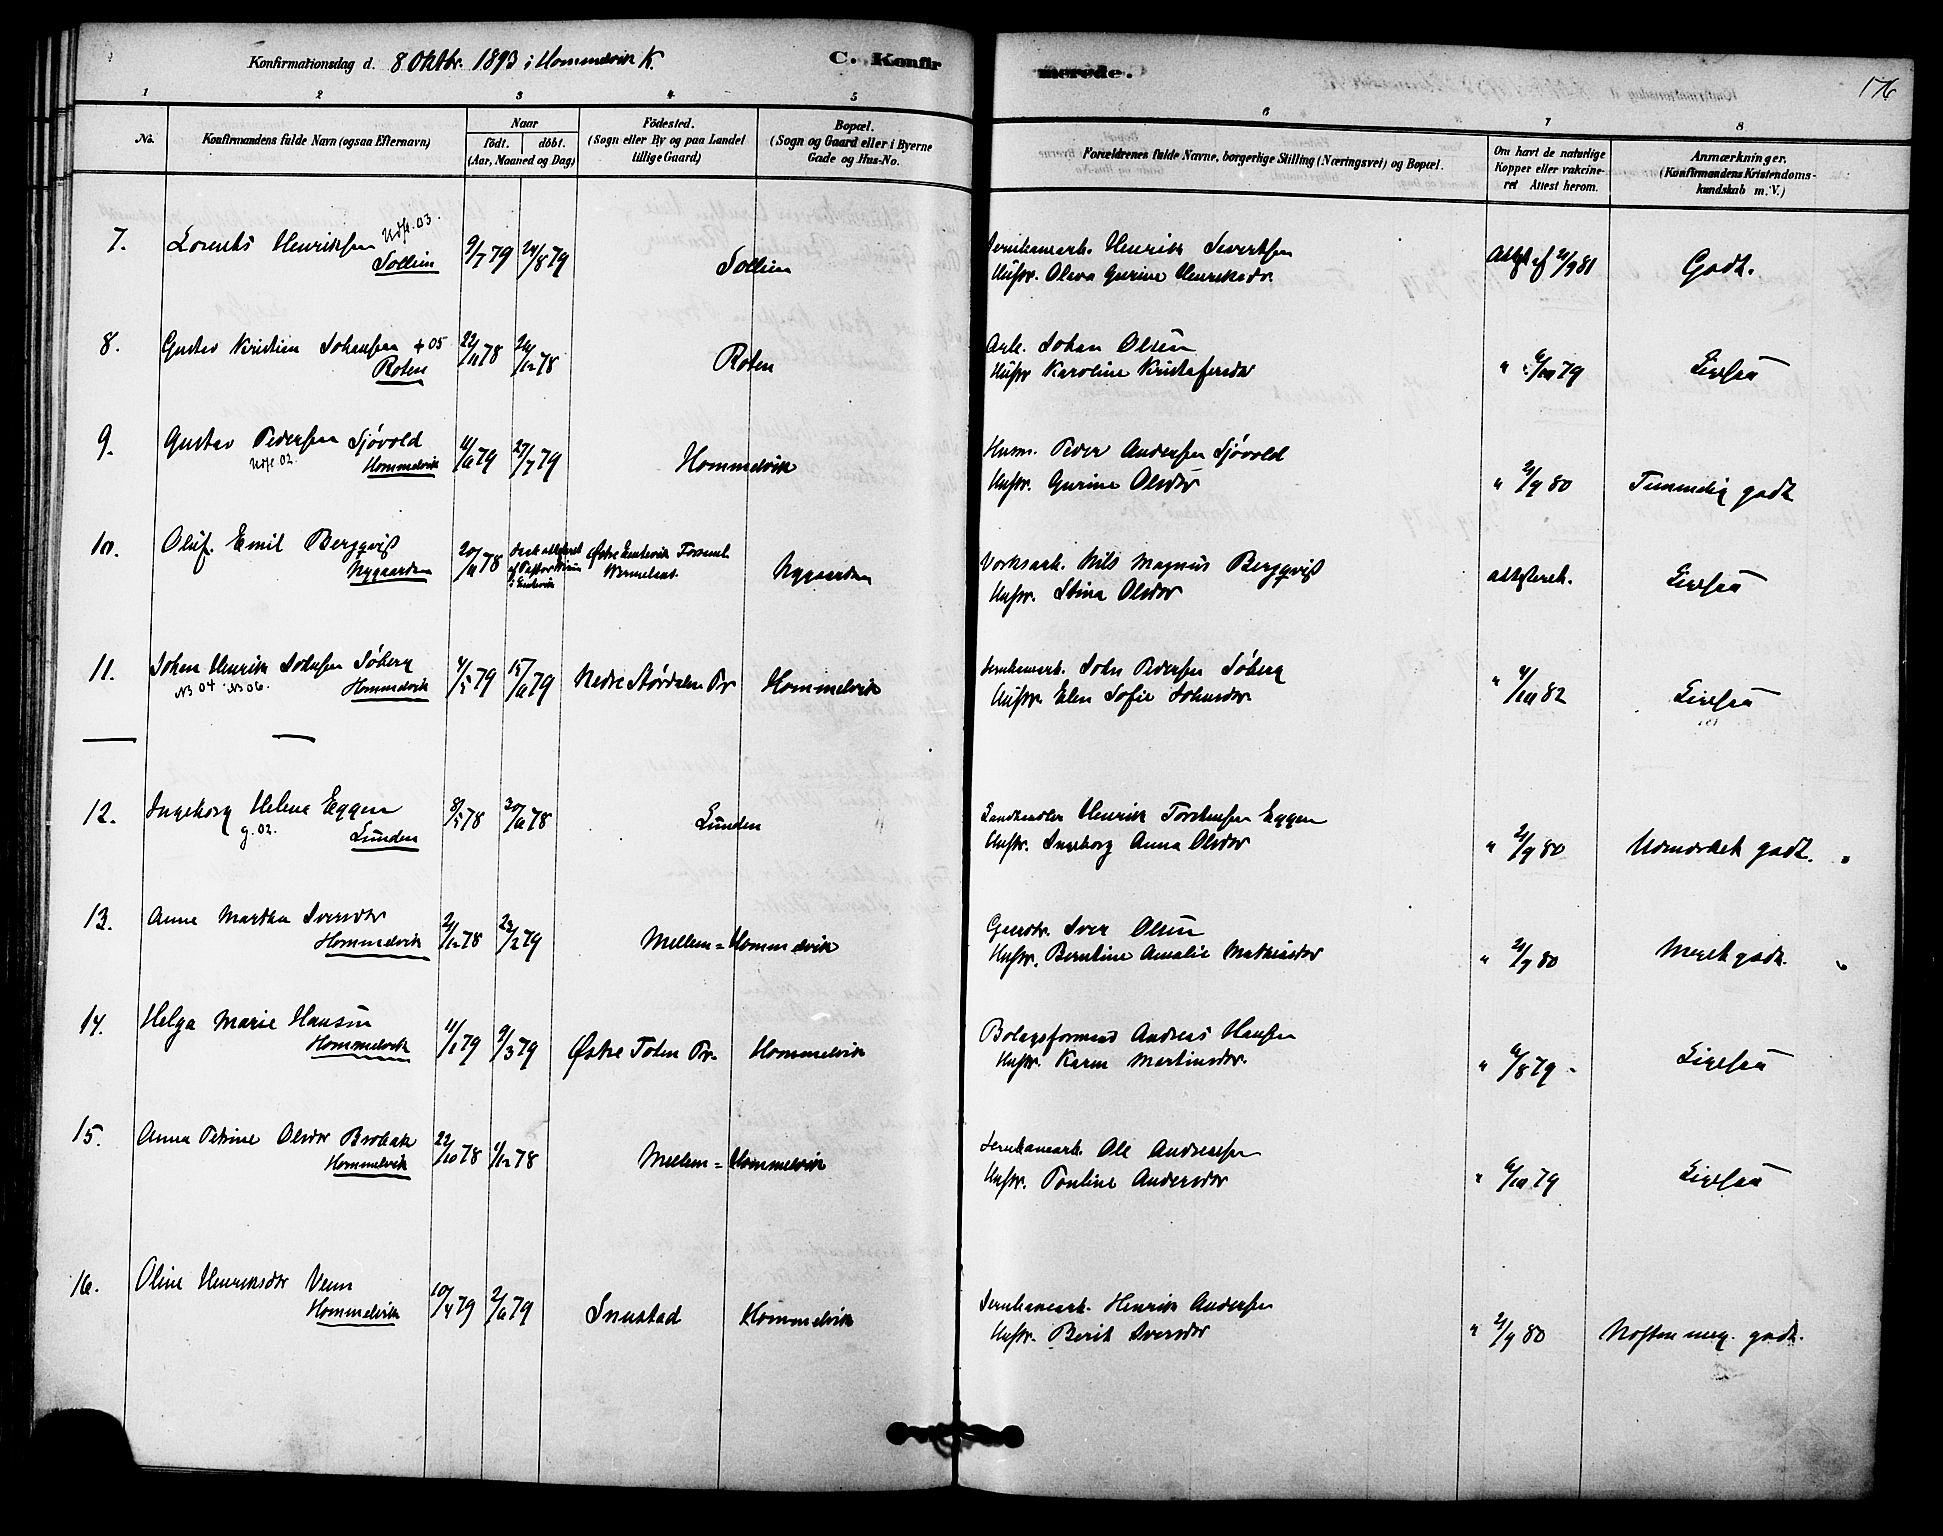 Konfirmationsdag d. 8 Oktbr. 1893 i Hommelvik K.
C. Konfirmerede.
176
1 2 3 4 5 6 7 8
No.
Konfirmandens fulde Navn (ogsaa Efternavn)
Naar
født. døbt.
(Aar, Maaned og Dag)
Fødested.
(Sogn eller By og paa Landet
tillige Gaard)
Bopæl.
(Sogn og Gaard eller i Byerne
Gade og Hus-No.
Forældrenes fulde Navne, borgerlige Stilling (Næringsvei) og Bopæl.
Om havt de naturlige
Kopper eller vakcine-
ret Attest herom.
Anmærkninger.
(Konfirmandens Kristendoms-
kundskab m. V.)
7. Lorents Henriksen Udfl. 03.
Solliin 9/7 79 24/8 79 Solliin
Jernbanearb. Henrik Sivertsen
Hustr. Oleva Gurine Henriksdr
Attest af 21/9 81 Godt.
8. Gustav Kristian Johansen + 05
Roten 22/11 78 26/12 78 Roten
Arb. Johan Olsen
Hustr Karoline Kristofersdr
" 6/10 79 Ligesaa
9. Gustav Pedersen Sjøvold
Udfl 02. Hommelvik 11/6 79 27/7 79 Hommelvik
Husm. Peder Andersen Sjøvold
Hustr. Gurine Olsdr
" 21/9 80 Temmelig godt
10. Oluf Emil Bergqvist
Nygaarden 20/11 78 Østre Nygaarden
Verksarb. Nils Magnus Bergqvist
Hustr. Stina Olsdr
attesteret. Ligesaa
11. Johan Henrik Johnsen Søberg
NB 04 NB 06. Hommelvik 4/5 79 15/6 79 Nedre Stjørdalen Pr Hommelvik
Jernbanearb. John Pedersen Søberg
Hustr. Elen Sofie Johnsdr
" 4/10 82 Ligesaa
12. Ingeborg Helena Eggen
g. 02. Lunden 8/5 78 30/6 78 Lunden
Landhandler Henrik Torstensen Eggen
Hustr. Ingeborg Anna Olsdr
" 21/9 80 Udmærket godt.
13. Anne Martha Iversdr
Hommelvik 21/12 78 23/2 79 Mellem=Hommelvik
Gaardbr. Iver Olsen
Hustr. Berntine Amalie Mathiasdr
" 21/9 80 Meget godt.
14. Helga Marie Hansen
Hommelvik 11/1 79 9/3 79 Østre Toten Pr. Hommelvik
Bolagsformand Andreas Hansen
Hustr. Karen Martinsdr.
" 6/8 79 Ligesaa
15. Anna Petrine Olsdr Brobak
Hommelvik 22/10 78 1/12 78 Mellem=Hommelvik
Jernbanearb. Ole Andreasen
Hustr. Pauline Andersdr
" 6/10 79 Ligesaa
16. Oline Henriksdr Venn
Hommelvik 10/4 79 2/6 79 Snustad Hommelvik
Jernbanearb. Henrik Andersen
Hustr. Berit Iversdr
" 21/9 80 Næsten meg. godt.